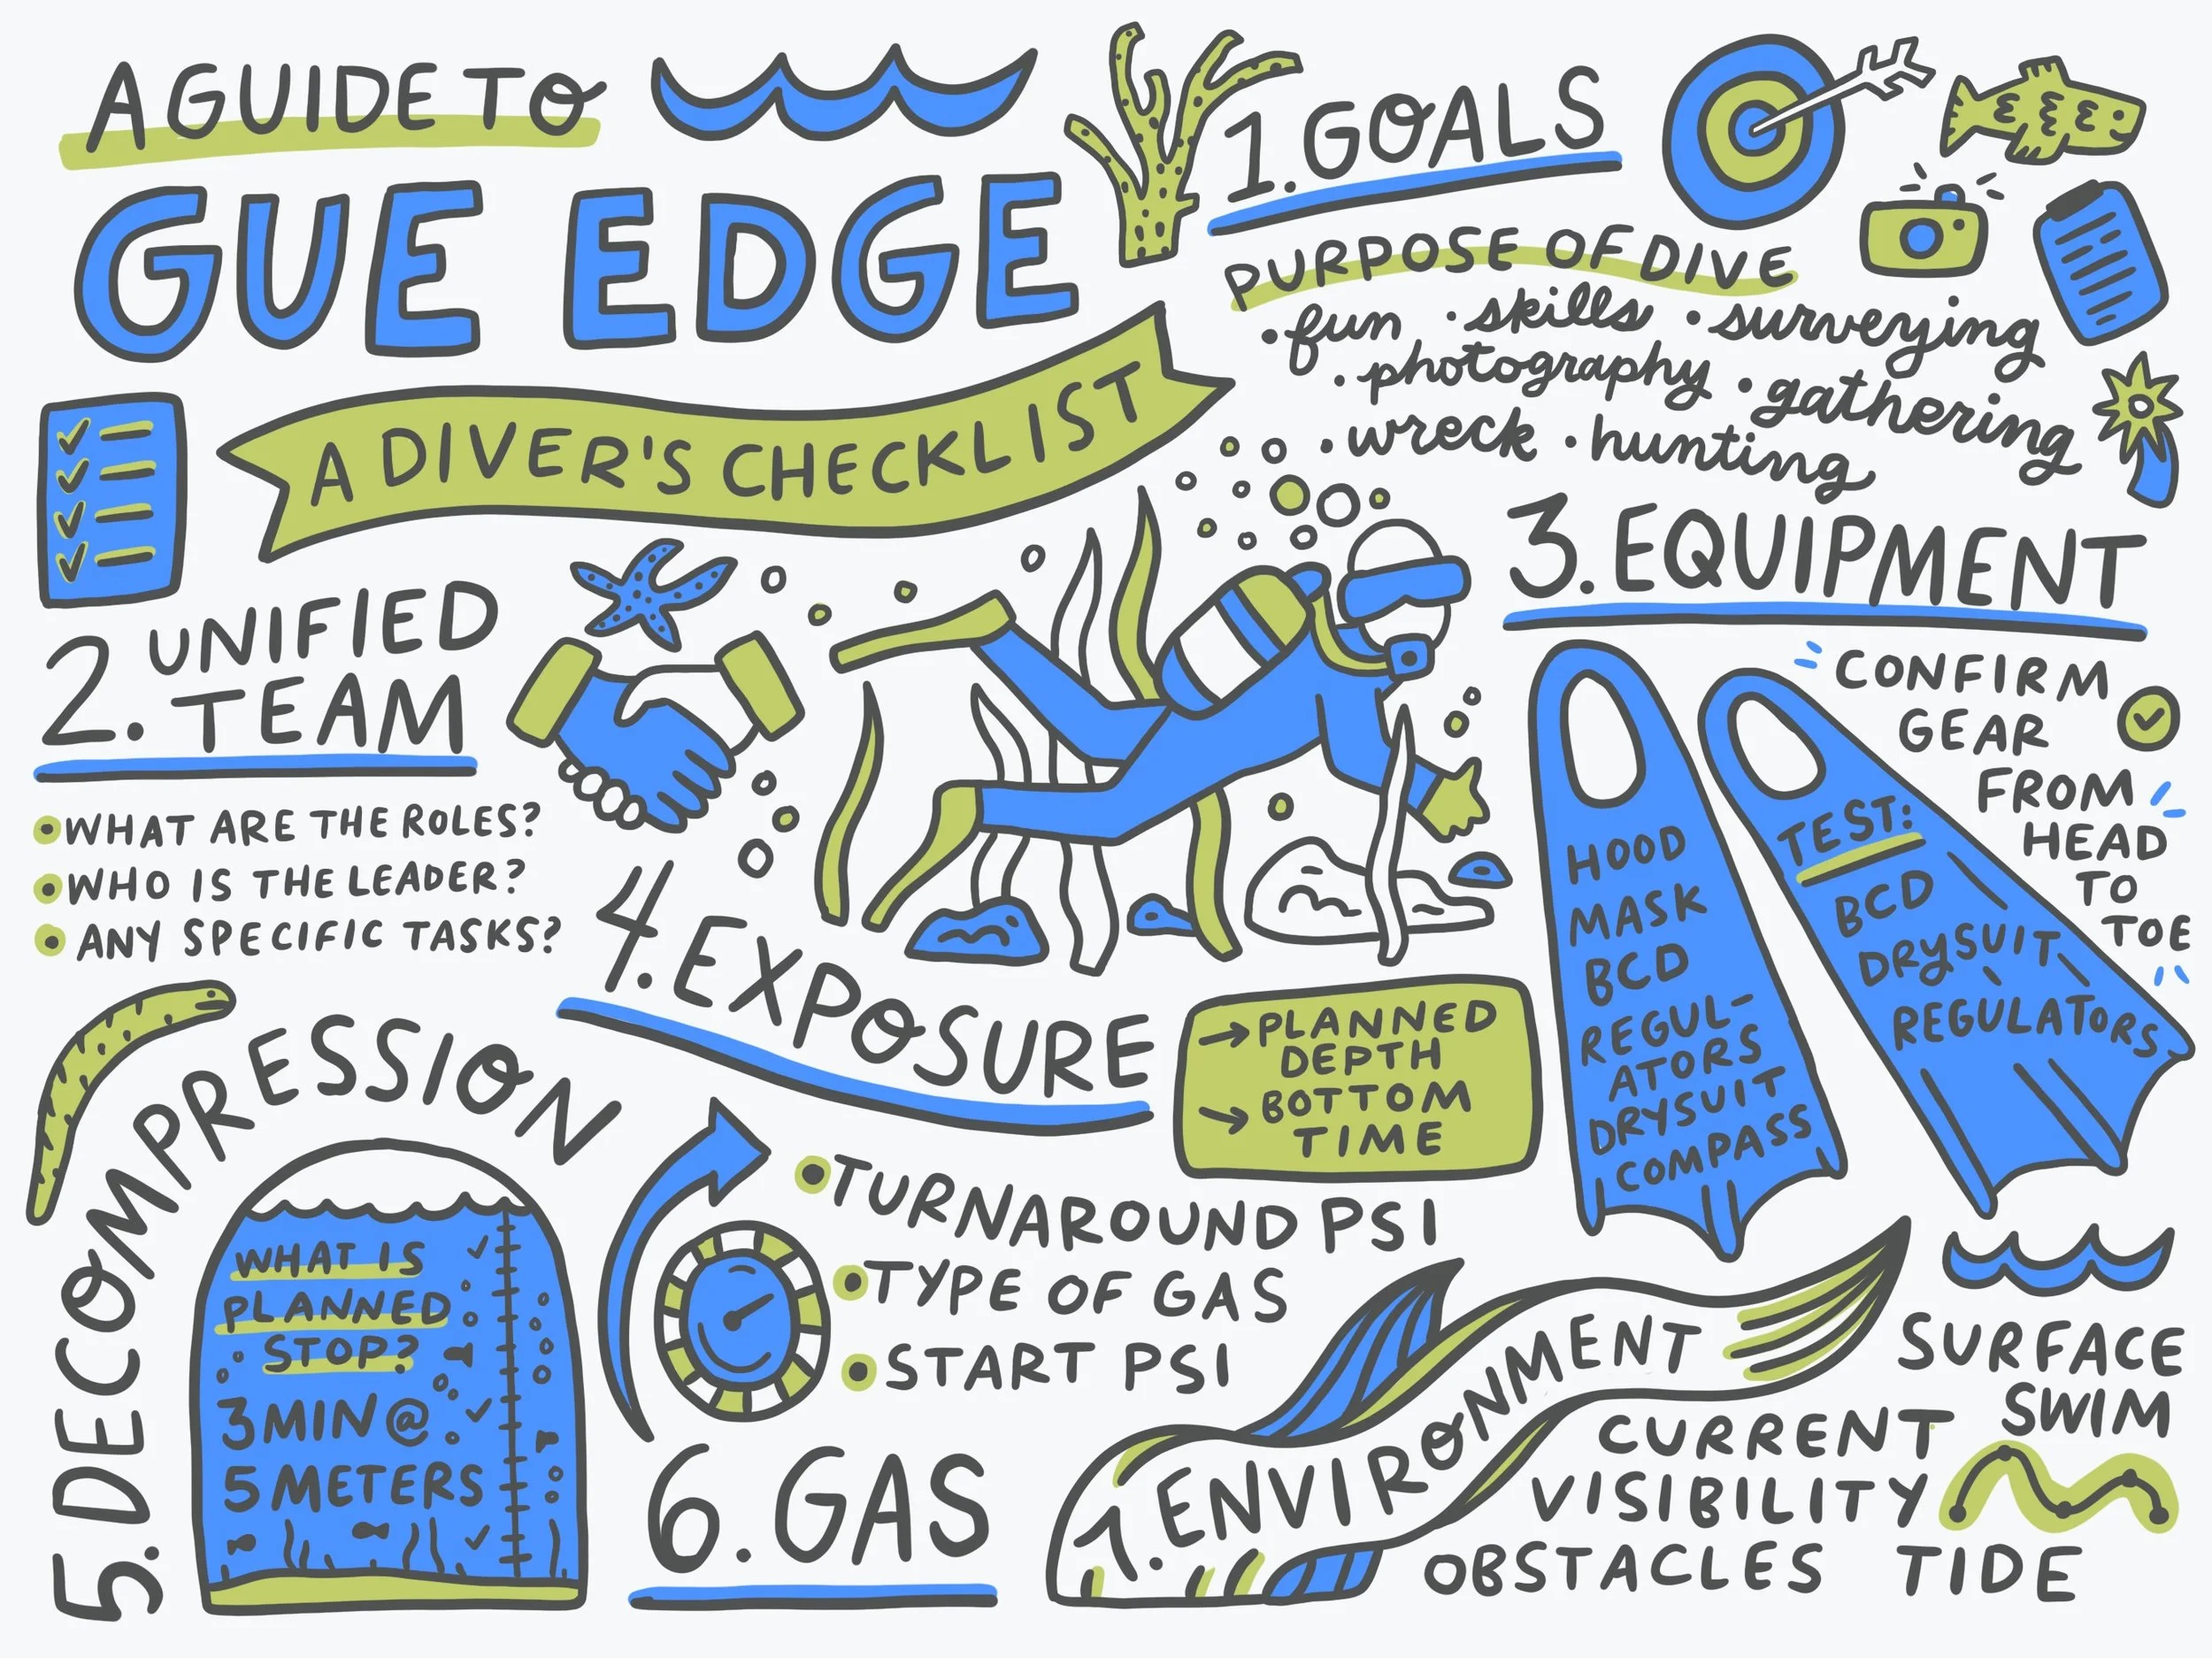 A GUIDE TO
GUE EDGE
A DIVER'S CHECKLIST
1. GOALS
PURPOSE OF DIVE
• fun • skills • surveying
• photography • gathering
• wreck • hunting
2. UNIFIED
TEAM
• WHAT ARE THE ROLES?
• WHO IS THE LEADER?
• ANY SPECIFIC TASKS?
3. EQUIPMENT
CONFIRM
GEAR
FROM
HEAD
TO
TOE
HOOD
MASK
BCD
REGUL-
ATORS
DRYSUIT
COMPASS
TEST:
BCD
DRYSUIT
REGULATORS
4. EXPOSURE
→ PLANNED
DEPTH
→ BOTTOM
TIME
5. DECOMPRESSION
WHAT IS
PLANNED
STOP?
3 MIN @
5 METERS
6. GAS
• TURNAROUND PSI
• TYPE OF GAS
• START PSI
1. ENVIRONMENT
SURFACE
SWIM
CURRENT
VISIBILITY
OBSTACLES TIDE